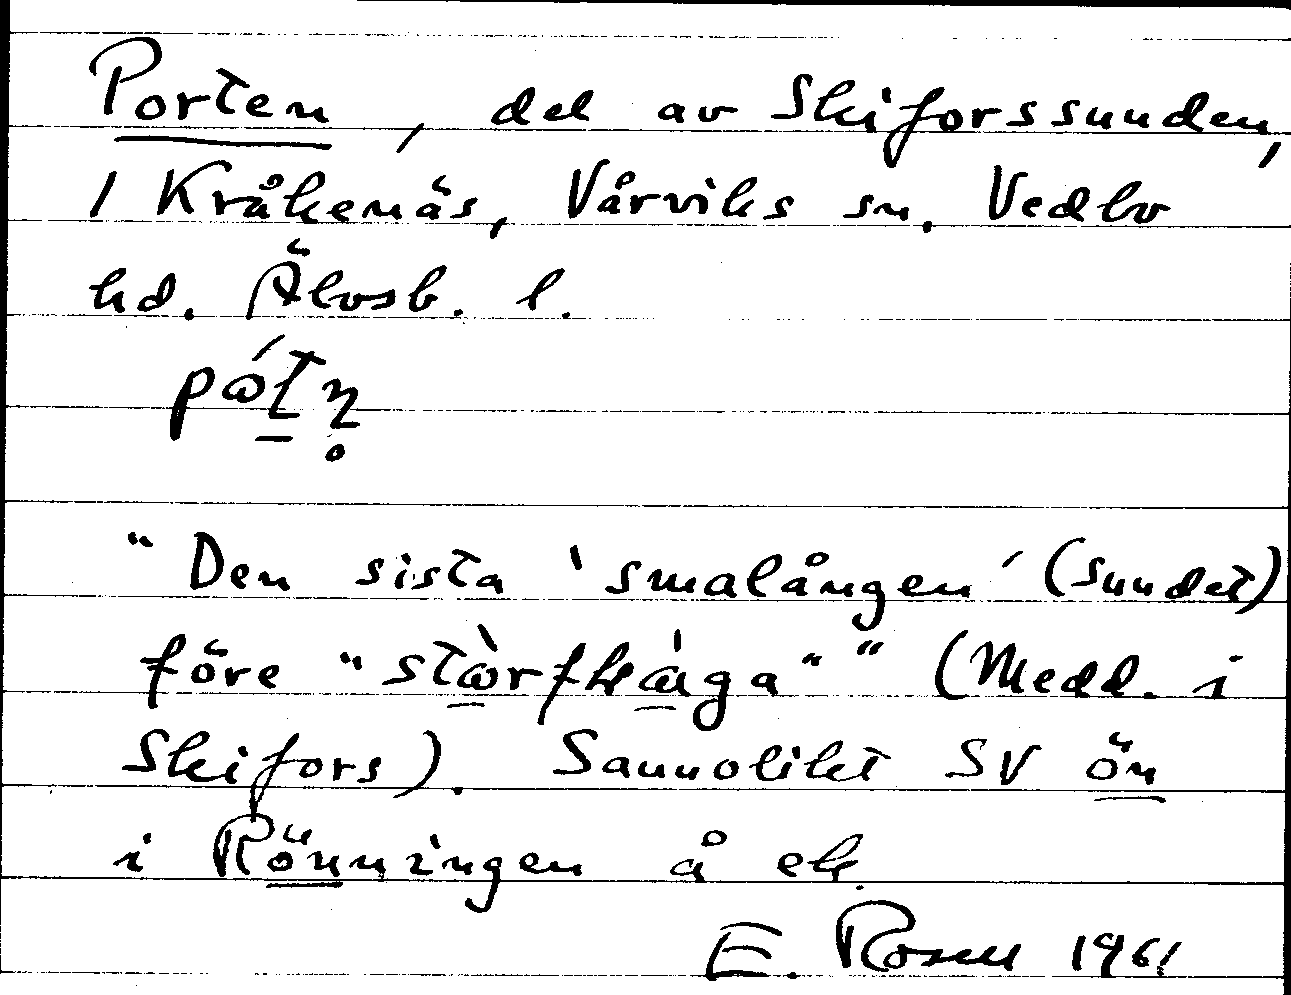 Porten, del av Skiforssunden,
1 Kråkenäs, Vårviks sn. Vedbo
hd. Älvsb. l.
"Den sista 'smalången' (sundet)
före "stòrfkàga"" (Medd. i
Skifors). Sannolikt SV ön
i Rönningen å ek.
E. Rosell 1961